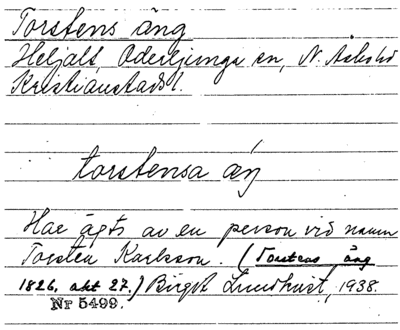 Torstens äng
Heljalt, Oderljunga sn, N. Åsbo hd
Kristianstads l.
torstensa äŋ
Har ägts av en person vid namn
Torsten Karlsson. (Torstens äng
1826, akt 27.) Birgit Lundkvist, 1938.
Nr 5499.